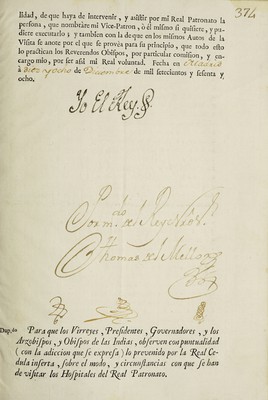 374
lidad, de que haya de Intervenir, y assistir por mi Real Patronato la
persona, que nombràre mi Vice-Patron, ò èl mismo si quisiere, y pu-
diere executarlo; y tambien con la de que en los mismos Autos de la
Visita se anote por el que se provea para su principio, que todo esto
lo practican los Reverendos Obispos, por particular comission, y en-
cargo mio, por ser assi mi Real voluntad. Fecha en Madrid
à diez y ocho de Diciembre de mil setecientos y sesenta y
ocho.
Yo El Rey
Por m.do del Rey Nro S.r
Thomas del Mello
Dup.do
Para que los Virreyes, Presidentes, Governadores, y los
Arzobispos, y Obispos de las Indias, observen con puntualidad
(con la adiccion que se expressa) lo prevenido por la Real Ce-
dula inserta, sobre el modo, y circunstancias con que se han
de visitar los Hospitales del Real Patronato.